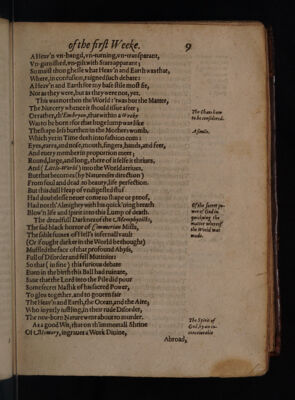 of the first Weeke. 9
A Heav'n vn-hangd, vn-turning, vn-transparant,
Vn-garnished, vn-gilt with Stars apparant;
So maist thou ghesse what Heav'n and Earth was that,
Where, in confusion, raigned such debate:
A Heav'n and Earth for my base stile most fit,
Not as they were, but as they were not, yet.
This was not then the World: 'twas but the Matter,
The Nurcery whence it should issue after;
Or rather, th' Embryon, that within a Weeke
Was to be born: for that huge lump was like
The shape-less burthen in the Mothers womb,
Which yet in Time doth into fashion com:
Eyes, eares, and nose, mouth, fingers, hands, and feet,
And every member in proportion meet;
Round, large, and long, there of it selfe it thrives,
And (Little-World) into the World arrives.
But that becomes (by Natures set direction)
From foul and dead, to beauty, life, perfection.
But this dull Heap of vndigested stuf
Had doubtlesse never come to shape or proof,
Had not th' Almighty with his quick'ning breath
Blow'n life and spirit into this Lump of death.
The dreadfull Darknes of the Memphytists,
The sad black horror of Cimmerian Mists,
The sable fumes of Hell's infernall vault
(Or if ought darker in the World be thought)
Muffled the face of that profound Abyss,
Full of Disorder and fell Mutinies:
So that (in fine) this furious debate
Even in the birth this Ball had ruinate,
Save that the Lord into the Pile did pour
Some secret Mastik of his sacred Power,
To glew together, and to govern fair
The Heav'n and Earth, the Ocean, and the Aire,
Who ioyntly iustling, in their rude Disorder,
The new-born Nature went about to murder.
As a good Wit, that on th' immortall Shrine
Of Memory, ingraves a Work Divine,
Abroad,
The Chaos how
to be considered.
A simile.
Of the secret po-
wer of God in
quickning the
matter whereof
the World was
made.
The Spirit of
God, by an in-
conceivable